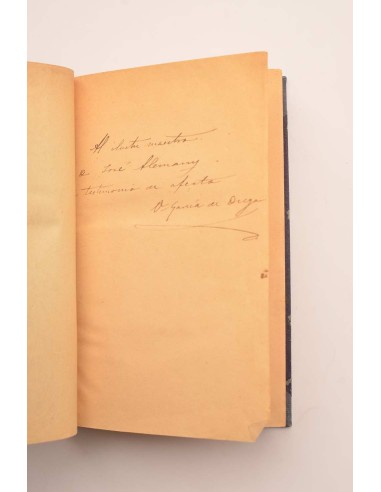 Al ilustre maestro
D. José Alemany
testimonio de afecto
V. García de Diego